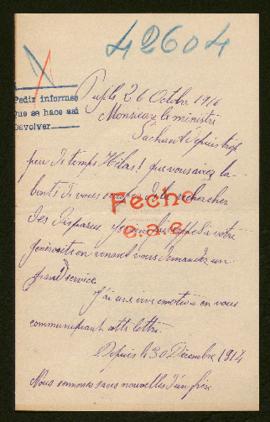 42604
Pedir informes
que se hace así
devolver
26 Octobre 1916
Monsieur le ministre
Sachant depuis trop
peu de temps Hélas! que vous avez la
bonté de vous de rechercher
des Disparus je à votre
générosité en venant vous demander un
grand service
Fecho
e.a.e.
J'ai une vive émotion en vous
communiquant cette lettre.
Depuis le 30 Décembre 1914
Nous sommes sans nouvelles d'un frère